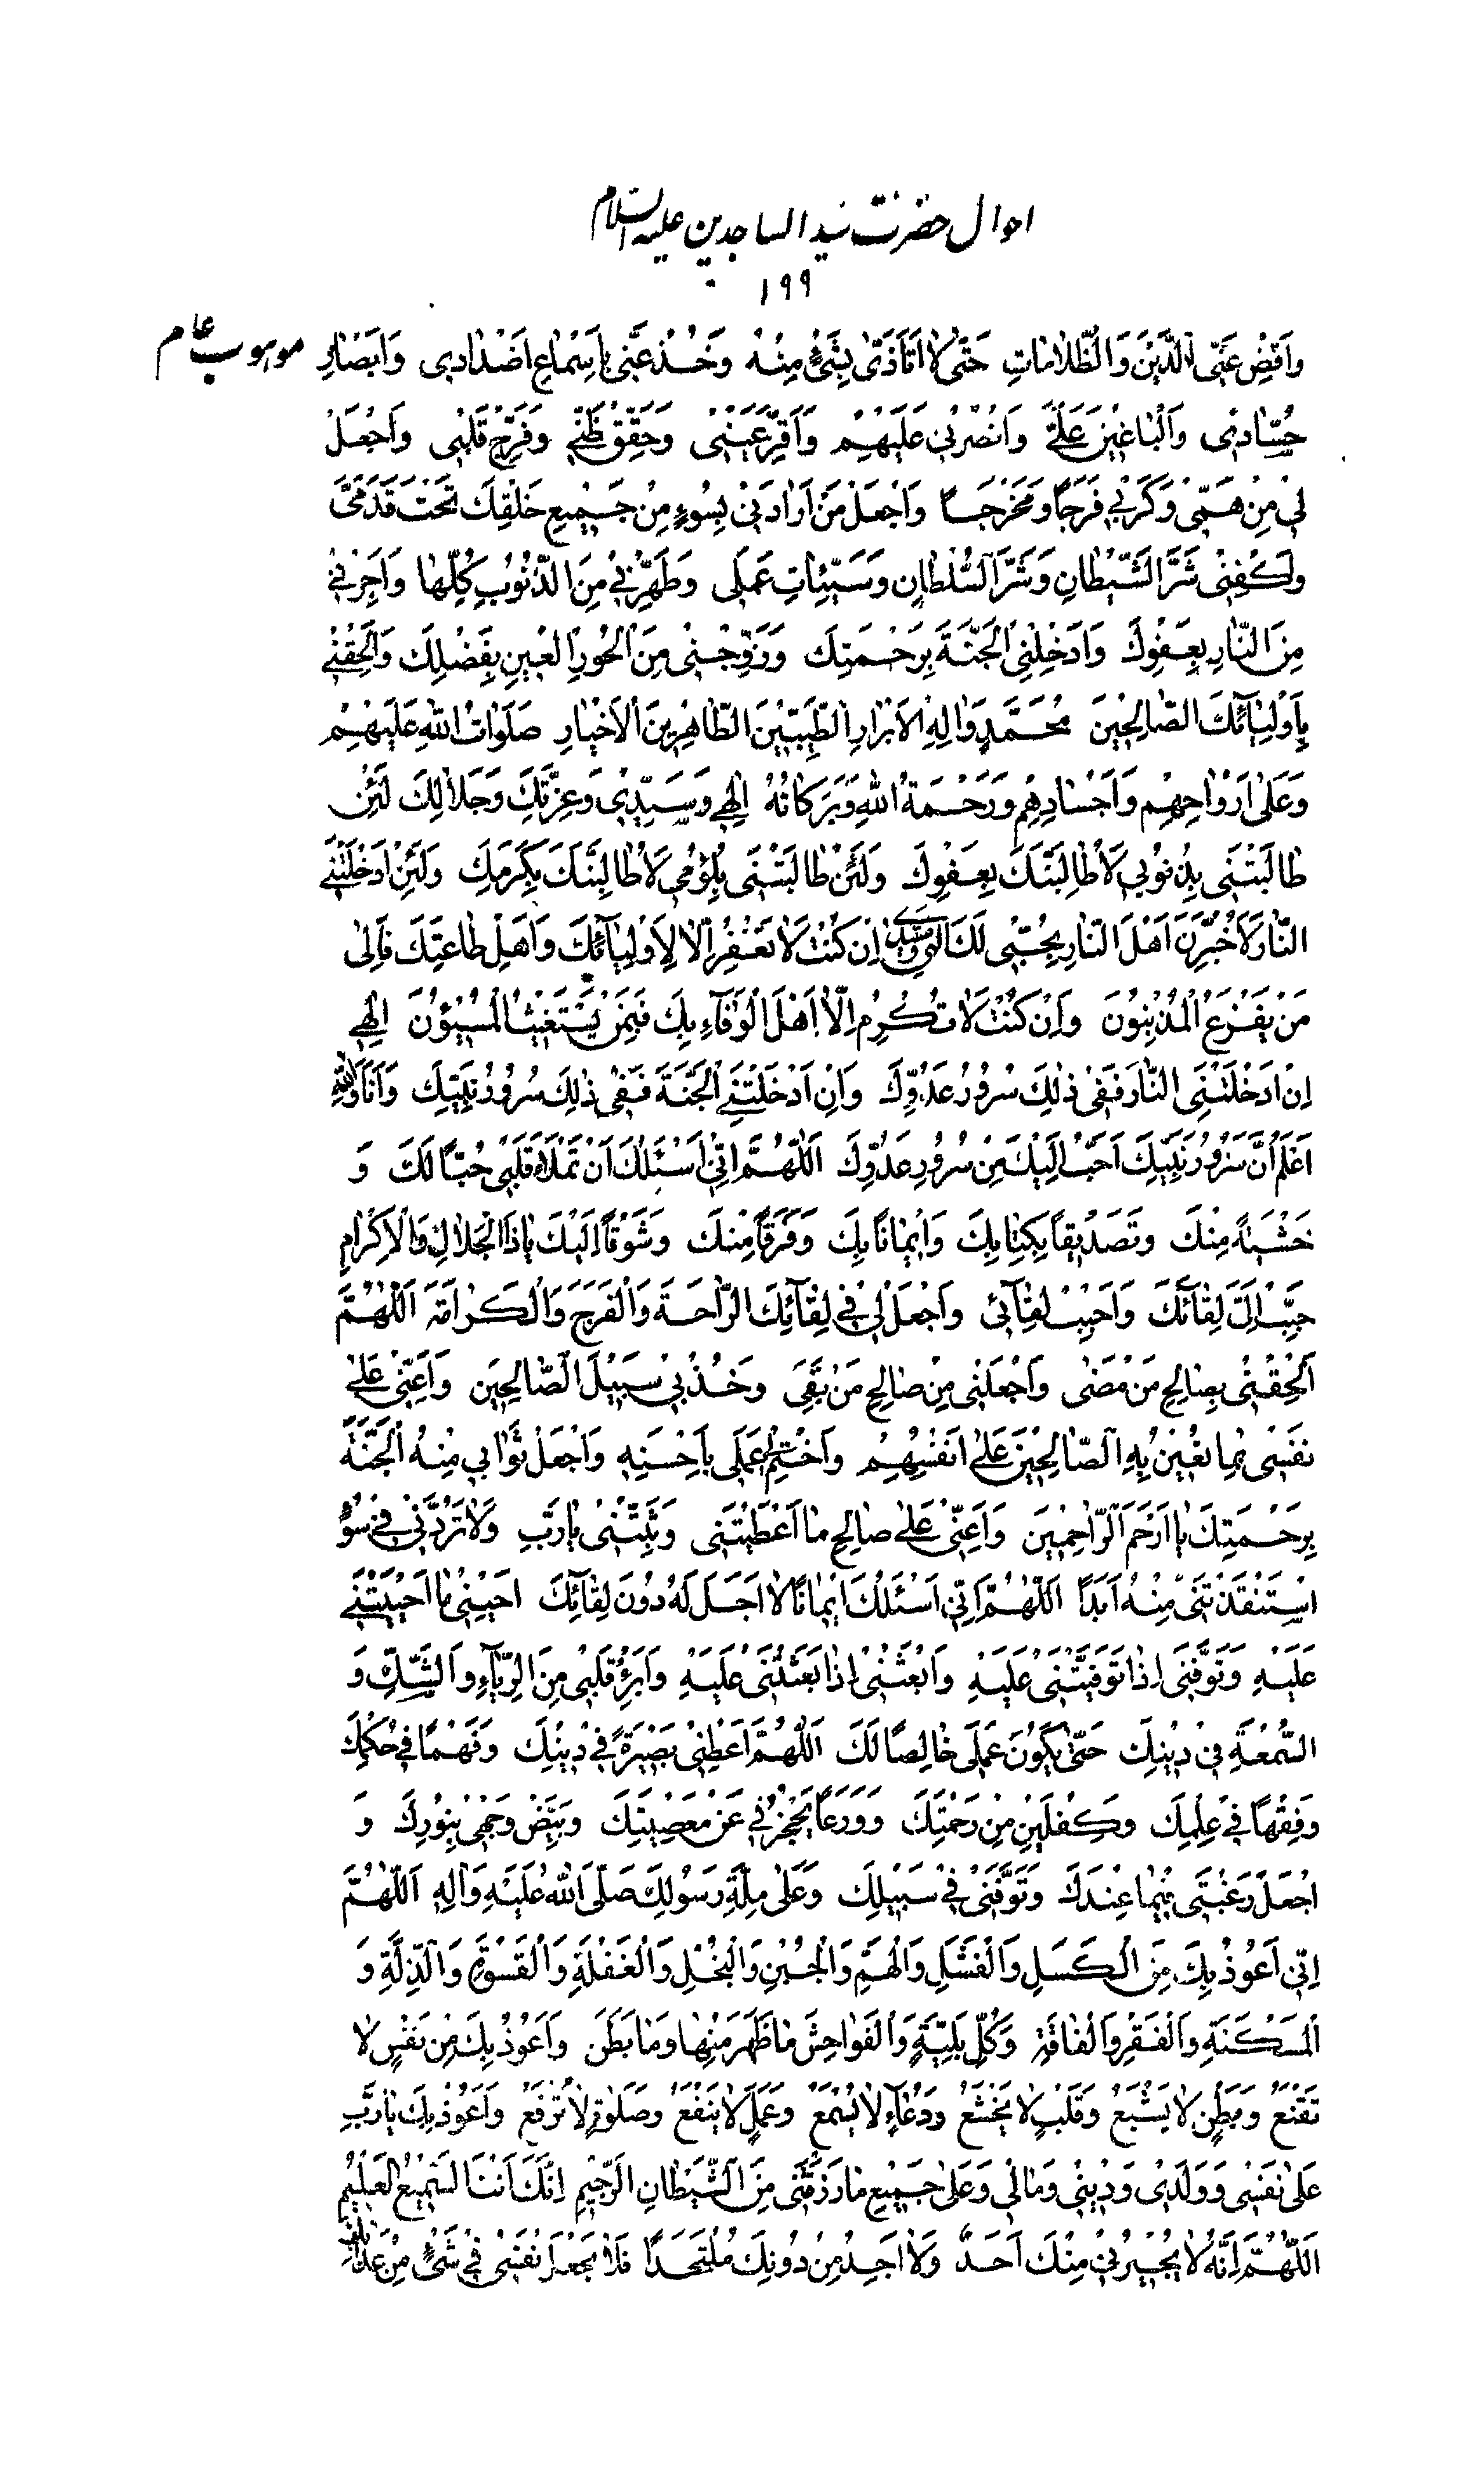 احوال حضرت سید الساجدین علیه السلام
۱۹۹
موهوب عام
وَاقْضِ عَنِّی الدَّیْنَ وَالظُّلاماتِ حَتّی لا اَتَاَذّی بِشَیْءٍ مِنْهُ وَخُذْ عَنّی بِاَسْماعِ اَضْدادی وَاَبْصارِ
حُسّادی وَالْباغینَ عَلَیَّ وَانْصُرْنی عَلَیْهِمْ وَاَقِرَّ عَیْنی وَحَقِّقْ ظَنّی وَفَرِّحْ قَلْبی وَاجْعَلْ
لی مِنْ هَمّی وَکَرْبی فَرَجًا وَمَخْرَجًا وَاجْعَلْ مَنْ اَرادَنی بِسُوءٍ مِنْ جَمیعِ خَلْقِكَ تَحْتَ قَدَمَیَّ
وَاکْفِنی شَرَّ الشَّیْطانِ وَشَرَّ السُّلْطانِ وَسَیِّئاتِ عَمَلی وَطَهِّرْنی مِنَ الذُّنُوبِ کُلِّها وَاَجِرْنی
مِنَ النّارِ بِعَفْوِكَ وَاَدْخِلْنِی الْجَنَّةَ بِرَحْمَتِكَ وَزَوِّجْنی مِنَ الْحُورِ الْعینِ بِفَضْلِكَ وَاَلْحِقْنی
بِاَوْلِیآئِكَ الصّالِحینَ مُحَمَّدٍ وَالِهِ الْاَبْرارِ الطَّیِّبینَ الطّاهِرینَ الْاَخْیارِ صَلَواتُ اللهِ عَلَیْهِمْ
وَعَلی اَرْواحِهِمْ وَاَجْسادِهِمْ وَرَحْمَةُ اللهِ وَبَرَکاتُهُ اِلهی وَسَیِّدی وَعِزَّتِكَ وَجَلالِكَ لَئِنْ
طالَبْتَنی بِذُنُوبی لَاُطالِبَنَّكَ بِعَفْوِكَ وَلَئِنْ طالَبْتَنی بِلُؤْمی لَاُطالِبَنَّكَ بِکَرَمِكَ وَلَئِنْ اَدْخَلْتَنی
النّارَ لَاُخْبِرَنَّ اَهْلَ النّارِ بِحُبّی لَكَ الهی وسیدی اِنْ کُنْتَ لا تَغْفِرُ اِلّا لِاَوْلِیآئِكَ وَاَهْلِ طاعَتِكَ فَاِلی
مَنْ یَفْزَعُ الْمُذْنِبُونَ وَاِنْ کُنْتَ لا تُکْرِمُ اِلّا اَهْلَ الْوَفآءِ بِكَ فَبِمَنْ یَسْتَغیثُ الْمُسیؤُنَ اِلهی
اِنْ اَدْخَلْتَنِی النّارَ فَفی ذلِكَ سُرُورُ عَدُوِّكَ وَاِنْ اَدْخَلْتَنِی الْجَنَّةَ فَفی ذلِكَ سُرُورُ نَبِیِّكَ وَاَنَا وَاللهِ
اَعْلَمُ اَنَّ سُرُورَ نَبِیِّكَ اَحَبُّ اِلَیْكَ مِنْ سُرُورِ عَدُوِّكَ اَللّهُمَّ اِنّی اَسْئَلُكَ اَنْ تَمْلَاَ قَلْبی حُبًّا لَكَ وَ
خَشْیَةً مِنْكَ وَتَصْدیقًا بِکِتابِكَ وَایمانًا بِكَ وَفَرَقًا مِنْكَ وَشَوْقًا اِلَیْكَ یا ذَا الْجَلالِ وَالْاِکْرامِ
حَبِّبْ اِلَیَّ لِقآئَكَ وَاَحْبِبْ لِقآئی وَاجْعَلْ لی فی لِقآئِكَ الرّاحَةَ وَالْفَرَجَ وَالْکَرامَةَ اَللّهُمَّ
اَلْحِقْنی بِصالِحِ مَنْ مَضی وَاجْعَلْنی مِنْ صالِحِ مَنْ بَقِیَ وَخُذْ بی سَبیلَ الصّالِحینَ وَاَعِنّی عَلی
نَفْسی بِما تُعینُ بِهِ الصّالِحینَ عَلی اَنْفُسِهِمْ وَاخْتِمْ عَمَلی بِاَحْسَنِهِ وَاجْعَلْ ثَوابی مِنْهُ الْجَنَّةَ
بِرَحْمَتِكَ یا اَرْحَمَ الرّاحِمینَ وَاَعِنّی عَلی صالِحِ ما اَعْطَیْتَنی وَثَبِّتْنی یا رَبِّ وَلا تَرُدَّنی فی سُوءٍ
اسْتَنْقَذْتَنی مِنْهُ اَبَدًا اَللّهُمَّ اِنّی اَسْئَلُكَ ایمانًا لا اَجَلَ لَهُ دُونَ لِقآئِكَ اَحْیِنی ما اَحْیَیْتَنی
عَلَیْهِ وَتَوَفَّنی اِذا تَوَفَّیْتَنی عَلَیْهِ وَابْعَثْنی اِذا بَعَثْتَنی عَلَیْهِ وَاَبْرِءْ قَلْبی مِنَ الرِّیآءِ وَالشَّكِّ وَ
السُّمْعَةِ فی دینِكَ حَتّی یَکُونَ عَمَلی خالِصًا لَكَ اَللّهُمَّ اَعْطِنی بَصیرَةً فی دینِكَ وَفَهْمًا فی حُکْمِكَ
وَفِقْهًا فی عِلْمِكَ وَکِفْلَیْنِ مِنْ رَحْمَتِكَ وَوَرَعًا یَحْجُزُنی عَنْ مَعْصِیَتِكَ وَبَیِّضْ وَجْهی بِنُورِكَ وَ
اجْعَلْ رَغْبَتی فیما عِنْدَكَ وَتَوَفَّنی فی سَبیلِكَ وَعَلی مِلَّةِ رَسُولِكَ صَلَّی اللهُ عَلَیْهِ وَالِهِ اَللّهُمَّ
اِنّی اَعُوذُ بِكَ مِنَ الْکَسَلِ وَالْفَشَلِ وَالْهَمِّ وَالْجُبْنِ وَالْبُخْلِ وَالْغَفْلَةِ وَالْقَسْوَةِ وَالذِّلَّةِ وَ
الْمَسْکَنَةِ وَالْفَقْرِ وَالْفاقَةِ وَکُلِّ بَلِیَّةٍ وَالْفَواحِشِ ما ظَهَرَ مِنْها وَما بَطَنَ وَاَعُوذُ بِكَ مِنْ نَفْسٍ لا
تَقْنَعُ وَبَطْنٍ لا یَشْبَعُ وَقَلْبٍ لا یَخْشَعُ وَدُعآءٍ لا یُسْمَعُ وَعَمَلٍ لا یَنْفَعُ وَصَلوةٍ لا تُرْفَعُ وَاَعُوذُ بِكَ یا رَبِّ
عَلی نَفْسی وَوَلَدی وَدینی وَمالی وَعَلی جَمیعِ ما رَزَقْتَنی مِنَ الشَّیْطانِ الرَّجیمِ اِنَّكَ اَنْتَ السَّمیعُ الْعَلیمُ
اَللّهُمَّ اِنَّهُ لا یُجیرُنی مِنْكَ اَحَدٌ وَلا اَجِدُ مِنْ دُونِكَ مُلْتَحَدًا فَلا تَجْعَلْ نَفْسی فی شَیْءٍ مِنْ عَذابِكَ